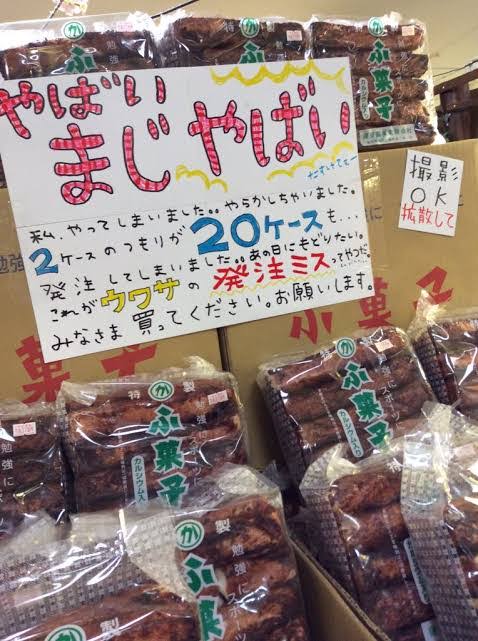 特製
か
ふ菓子
特製
か
ふ菓子
勉強に
特製
か
ふ菓子
カルシウム入り
やばい
まじやばい
たすけてえー
私、やってしまいました。。やらかしちゃいました。
2ケースのつもりが20ケースも…
発注してしまいました。。あの日にもどりたい。
これがウワサの発注ミスってやつだ。
みなさま買ってください。お願いします。
撮影
OK
拡散して
菓子
ふ菓子
特製
か
ふ菓子
カルシウム入り
勉強にスポーツ
特製
か
ふ菓子
カルシウム入り
勉強に
製
か
ふ菓子
勉強にスポーツ
製
か
ふ菓子
勉強に